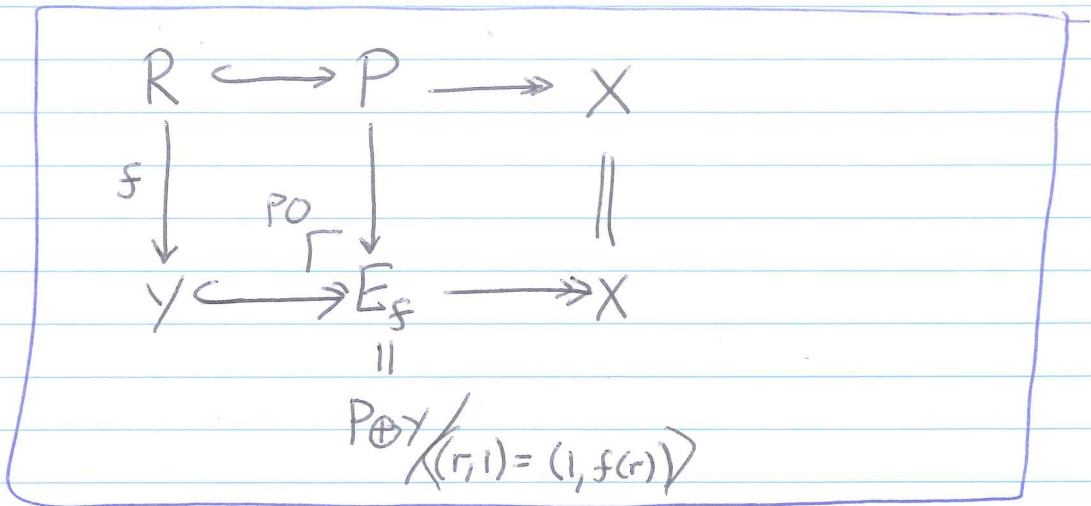 R ↪ P ↠ X
f
PO
Y ↪ E_f ↠ X
||
P⊕Y/⟨(r,1) = (1,f(r))⟩